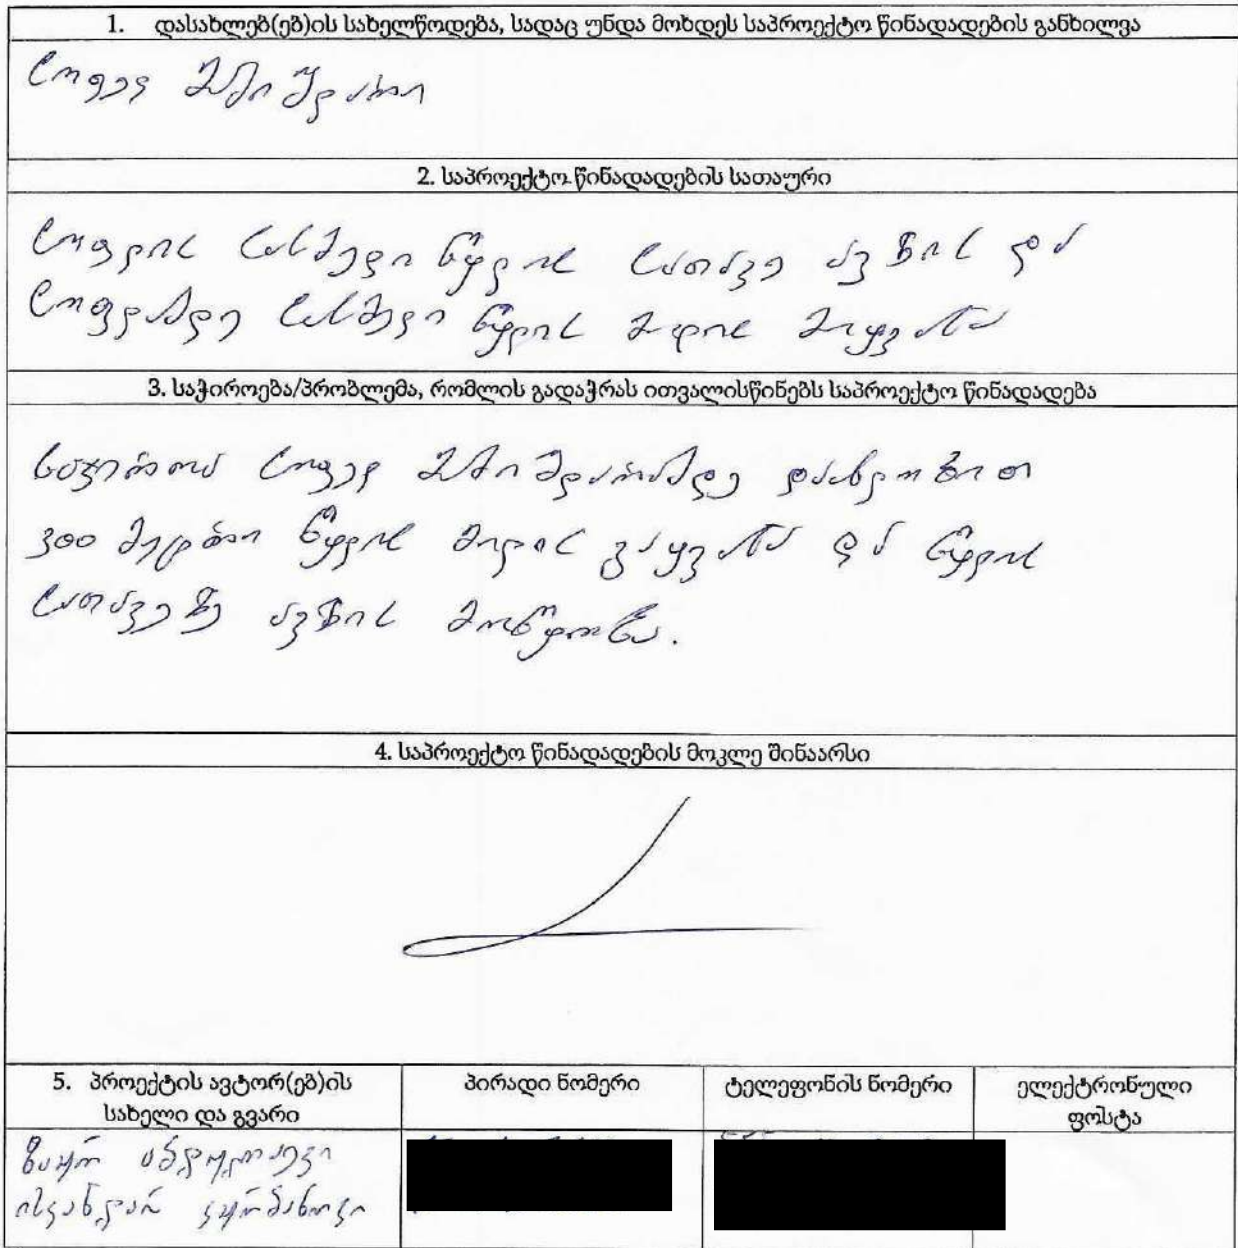 1. დასახლებ(ებ)ის სახელწოდება, სადაც უნდა მოხდეს საპროექტო წინადადების განხილვა
სოფელ მამიშლარი
2. საპროექტო წინადადების სათაური
სოფლის სასმელი წყლის სათავე ავზის და
სოფლამდე სასმელი წყლის მილის მოყვანა
3. საჭიროება/პრობლემა, რომლის გადაჭრას ითვალისწინებს საპროექტო წინადადება
საჭიროა სოფელ მამიშლარამდე დაახლოებით
300 მეტრი წყლის მილის გაყვანა და წყლის
სათავეზე ავზის მოწყობა.
4. საპროექტო წინადადების მოკლე შინაარსი
5. პროექტის ავტორ(ებ)ის
სახელი და გვარი
პირადი ნომერი
ტელეფონის ნომერი
ელექტრონული
ფოსტა
ზაურ აბდულაევი
ისკანდარ გურბანოვი